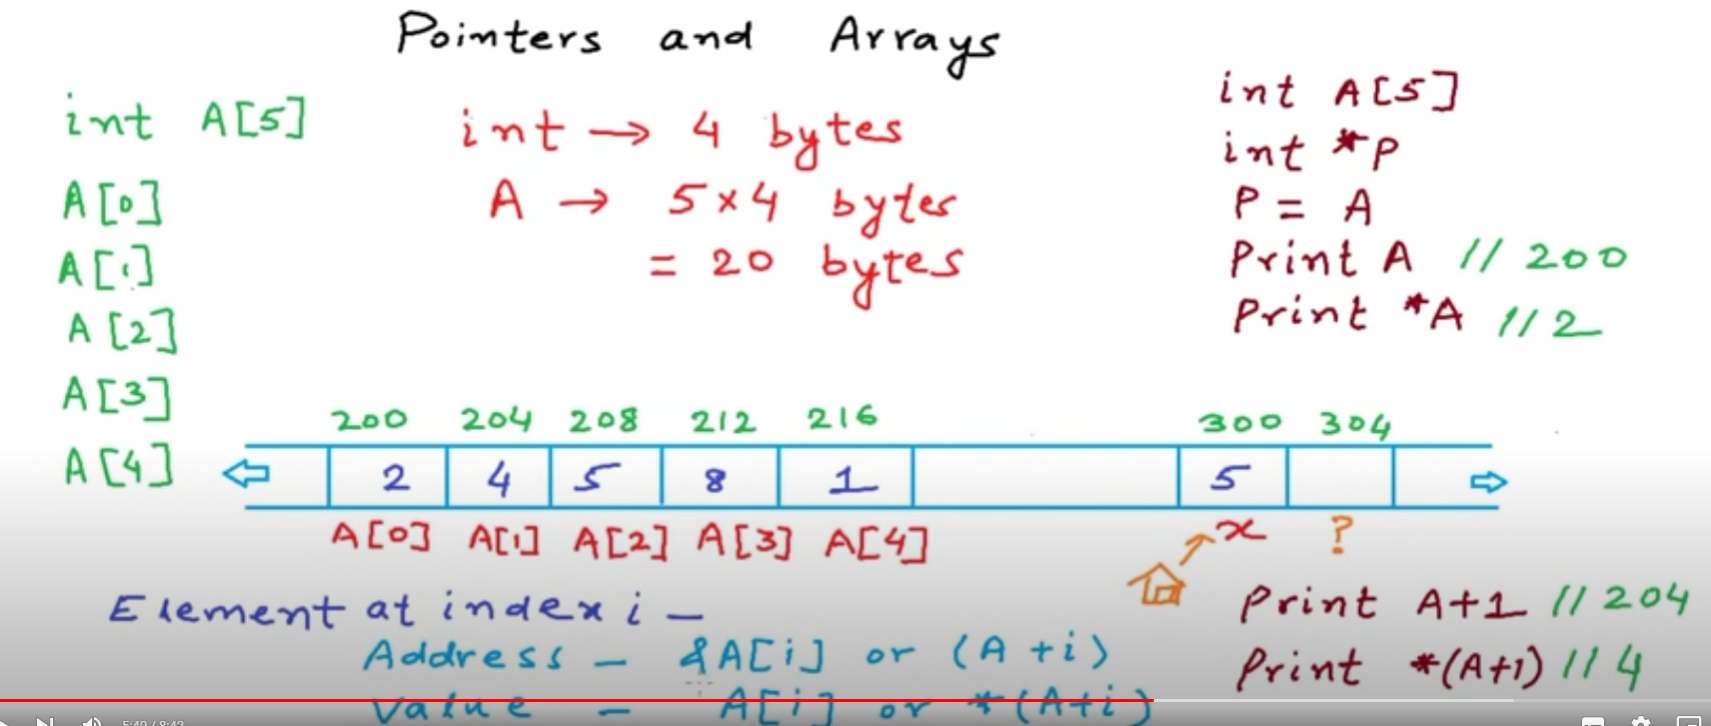 Pointers and Arrays
int A[5]
A[0]
A[1]
A[2]
A[3]
A[4]
int → 4 bytes
A → 5 x 4 bytes
= 20 bytes
int A[5]
int *P
P = A
Print A // 200
Print *A // 2
200 204 208 212 216 300 304
2 4 5 8 1 5
A[0] A[1] A[2] A[3] A[4] x ?
Element at index i –
Address – &A[i] or (A + i)
Value – A[i] or *(A+i)
Print A+1 // 204
Print *(A+1) // 4
5:40 / 8:42